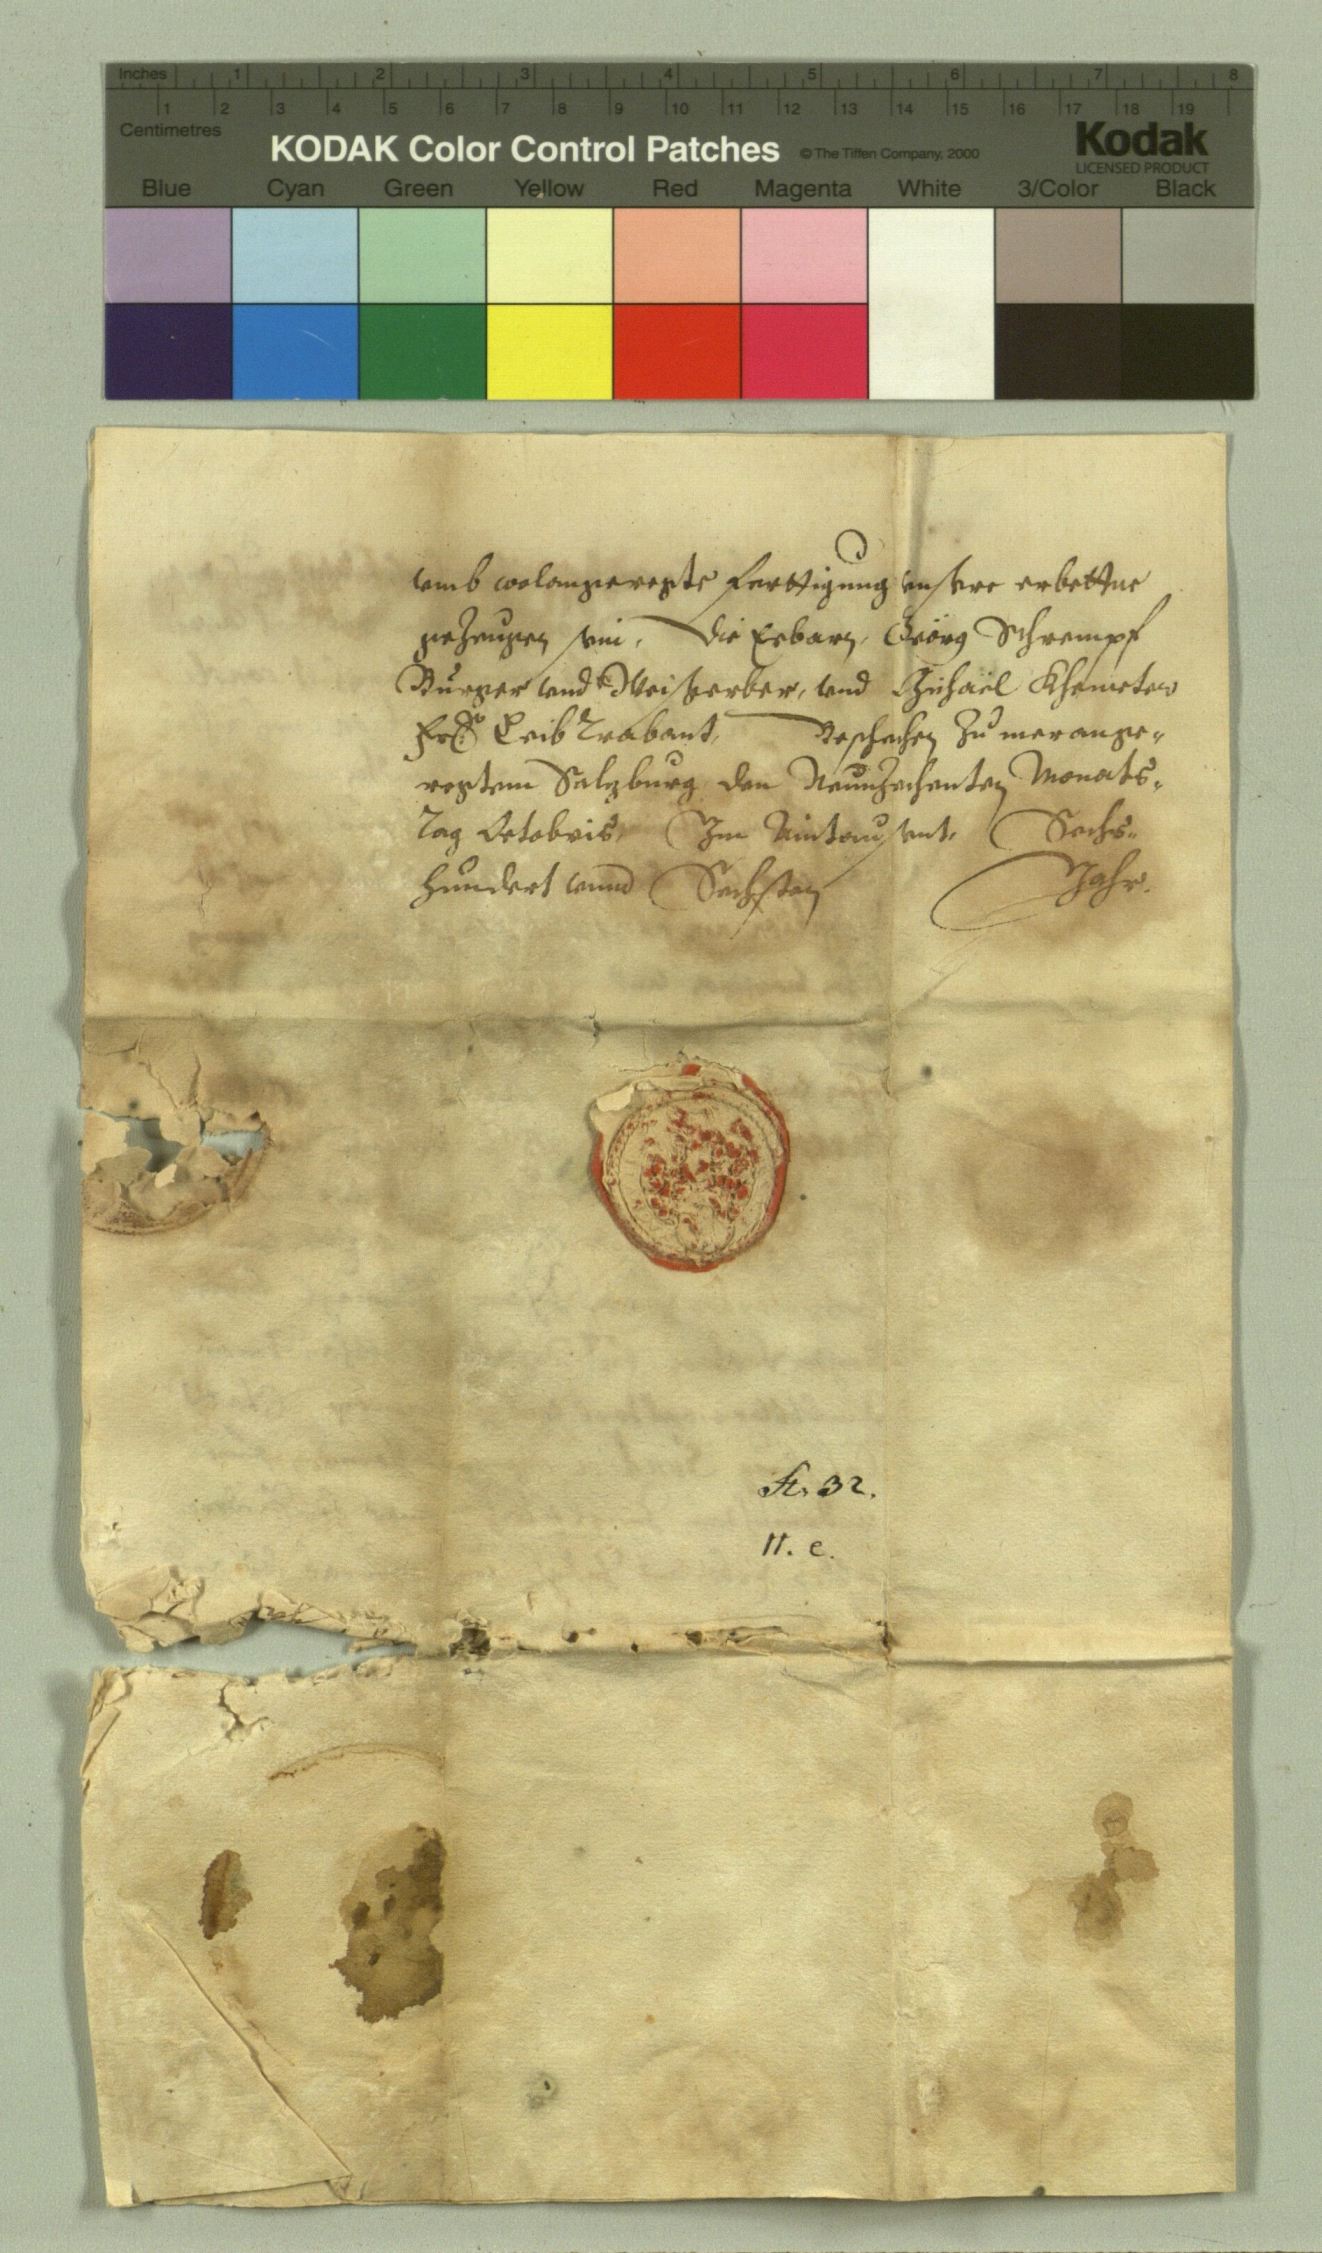 Inches 1 2 3 4 5 6 7 8
1 2 3 4 5 6 7 8 9 10 11 12 13 14 15 16 17 18 19
Centimetres
KODAK Color Control Patches © The Tiffen Company, 2000 Kodak
LICENSED PRODUCT
Blue Cyan Green Yellow Red Magenta White 3/Color Black
umb wolangeregte Ferttigung unsere erbettne
gezeugen sein, die Erbarn, Geörg Schrempf
Burger und Weisgerber, und Michaël
Leib Trabant, Beschechen zu merange-
regtem Salzburg den Neunzechenten Monats-
Tag Octobris, Im Aintausent, Sechs-
hundert unnd Sechsten Jahr.
St. 32.
II. e.